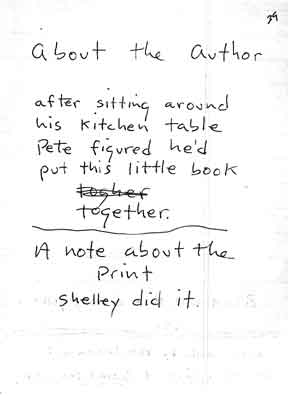 29
about the author
after sitting around
his kitchen table
Pete figured he'd
put this little book
togher
together.
A note about the
print
shelley did it.